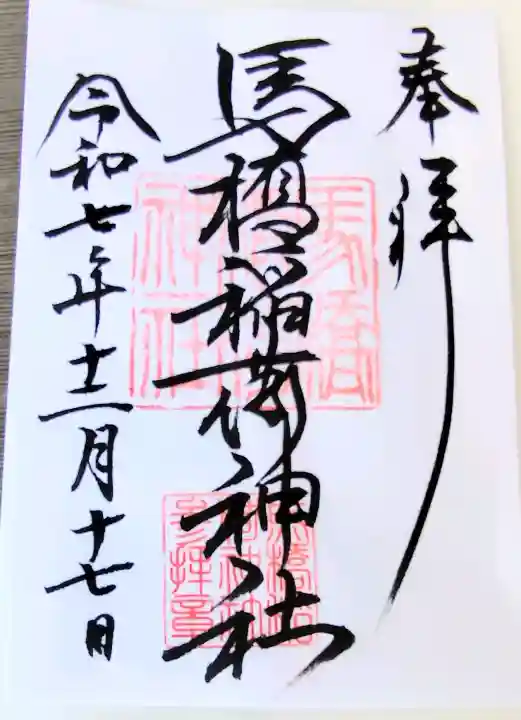 奉拝
馬橋稲荷神社
令和七年十二月十七日